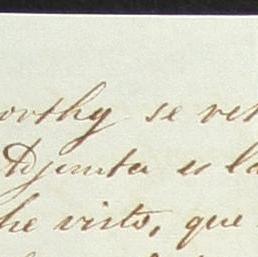 orthy se ret
Adjunta es la
he visto, que